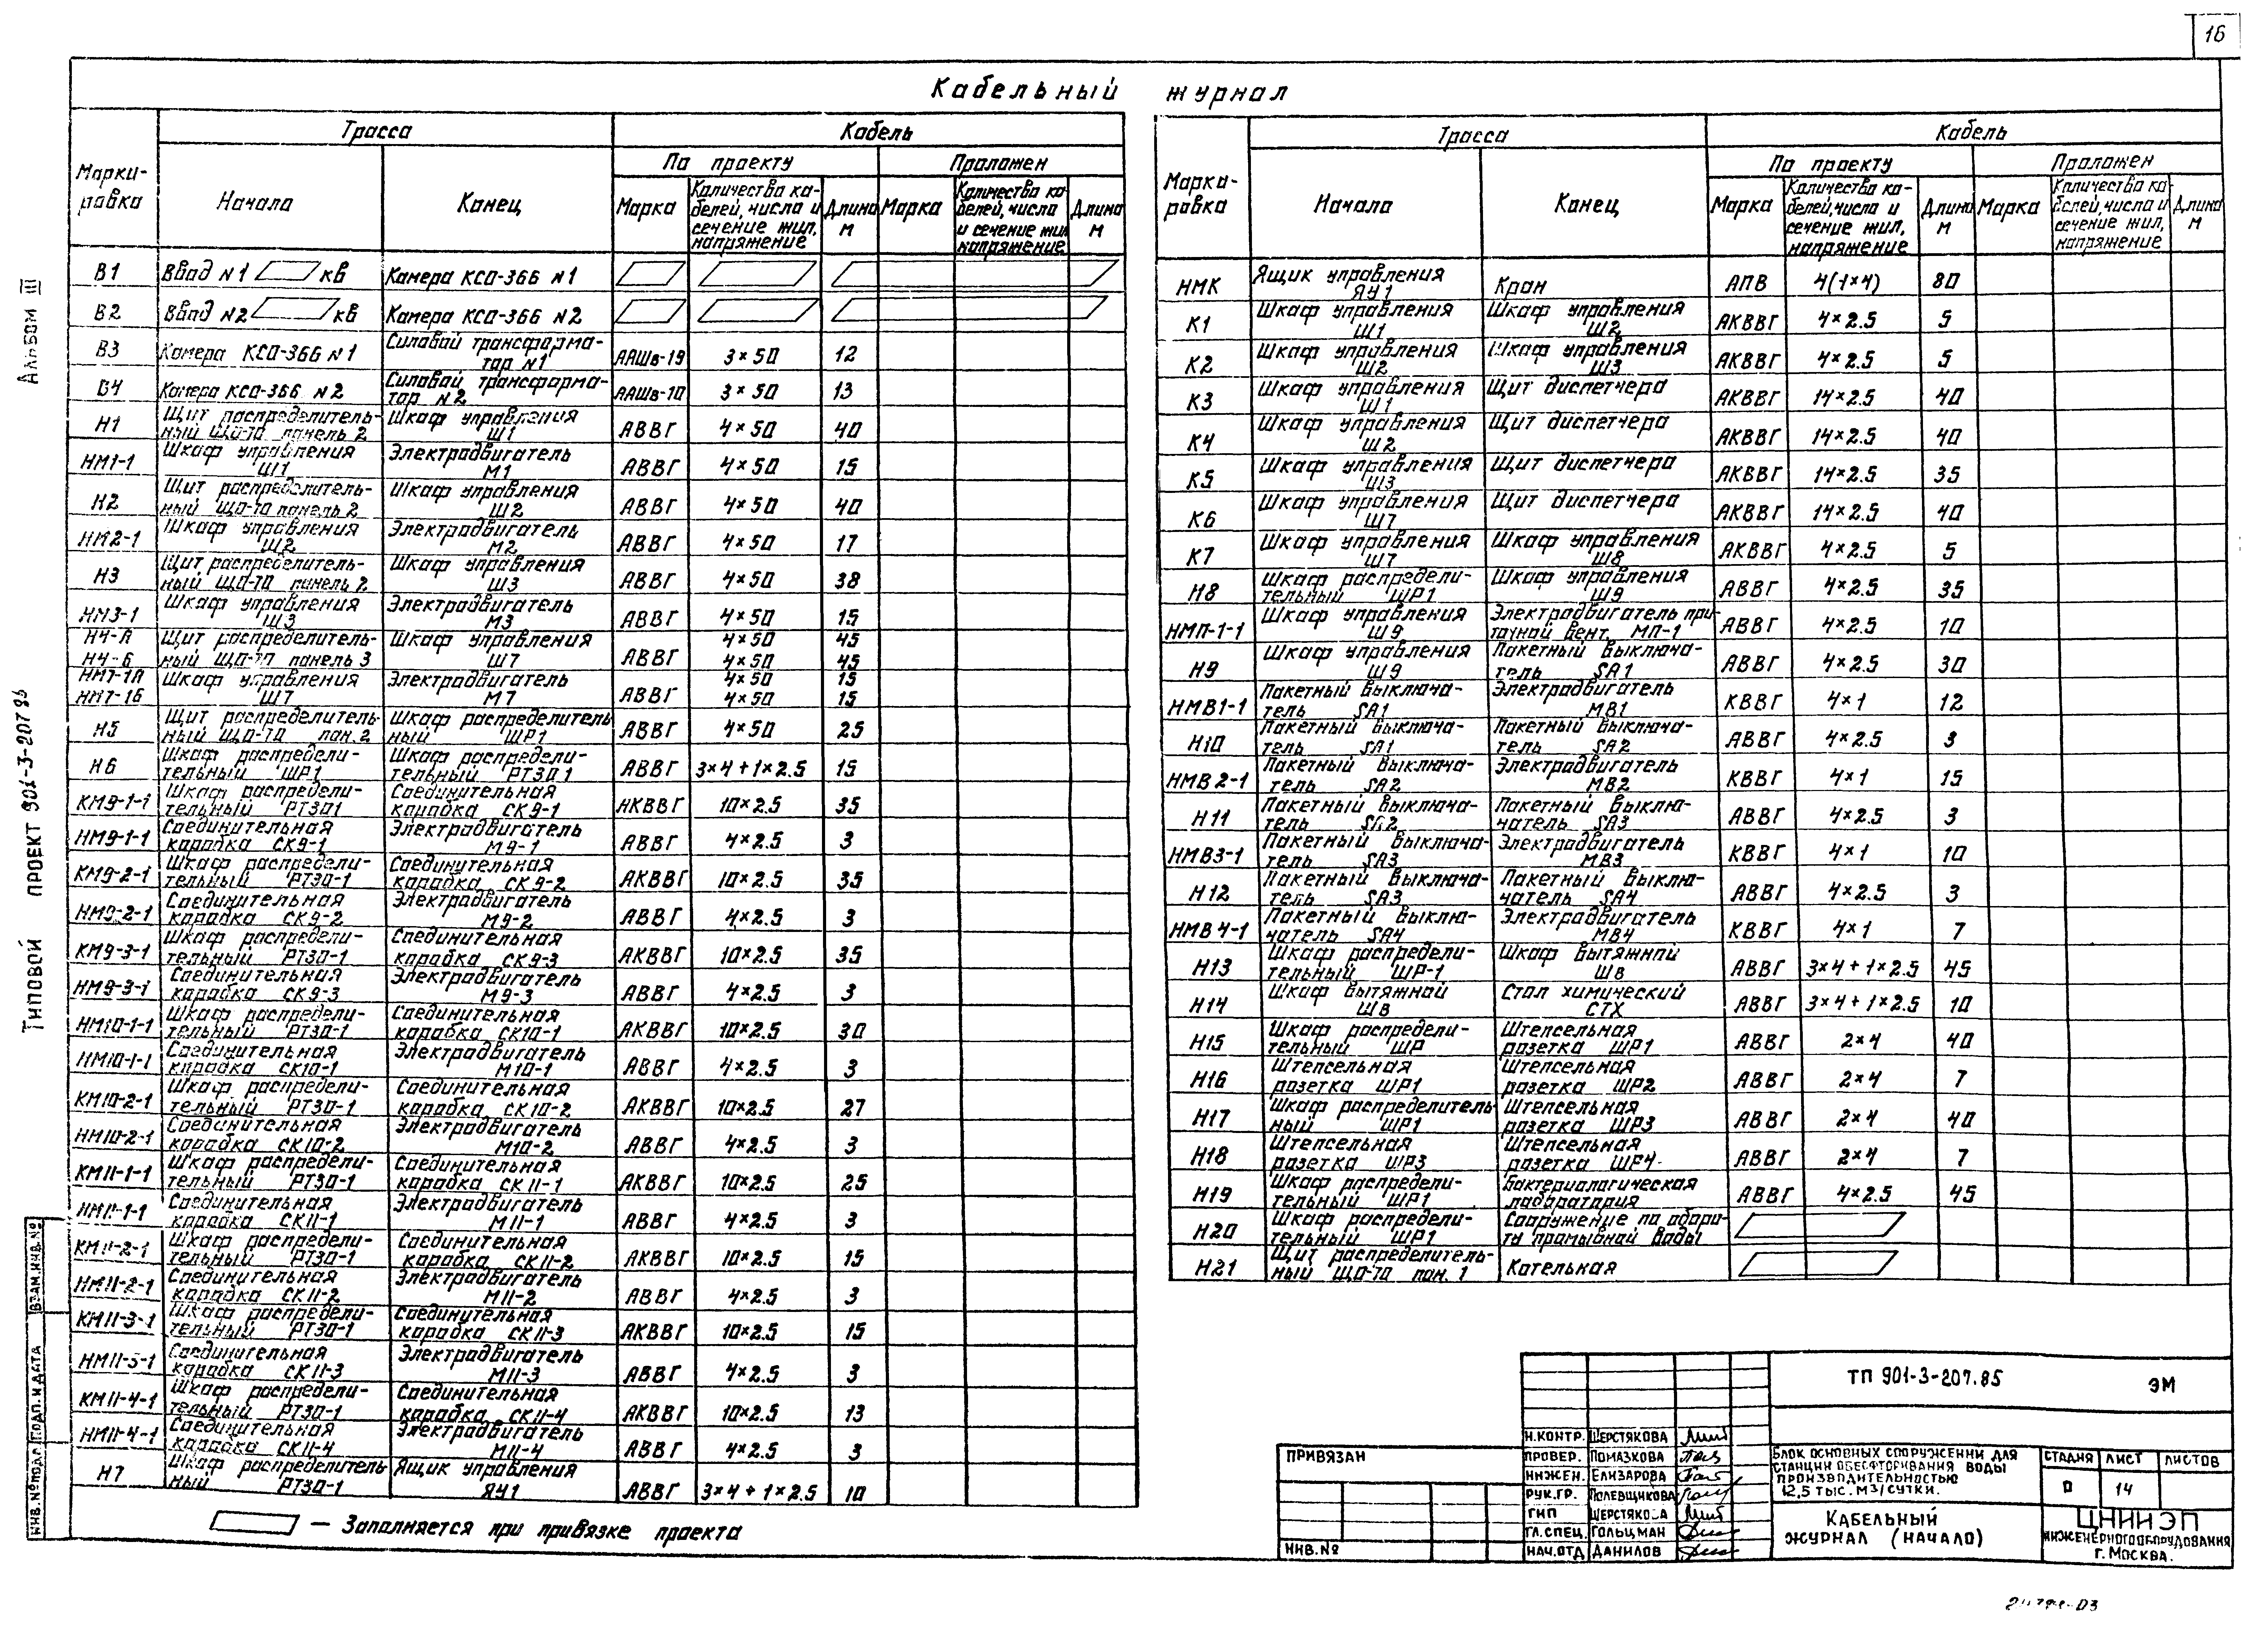 16
Кабельный журнал
Альбом III
Типовой проект 901-3-207.85
Марки-ровка | Трасса | Кабель
Начало | Конец | По проекту | Проложен
Марка | Количество кабелей, число и сечение жил, напряжение | Длина м | Марка | Количество кабелей, число и сечение жил напряжение | Длина м
В1 | Ввод №1 кВ | Камера КСО-366 №1
В2 | Ввод №2 кВ | Камера КСО-366 №2
В3 | Камера КСО-366 №1 | Силовой трансформатор №1 | ААШв-10 | 3×50 | 12
В4 | Камера КСО-366 №2 | Силовой трансформатор №2 | ААШв-10 | 3×50 | 13
Н1 | Щит распределительный ЩО-70 панель 2 | Шкаф управления Ш1 | АВВГ | 4×50 | 40
НМ1-1 | Шкаф управления Ш1 | Электродвигатель М1 | АВВГ | 4×50 | 15
Н2 | Щит распределительный ЩО-70 панель 2 | Шкаф управления Ш2 | АВВГ | 4×50 | 40
НМ2-1 | Шкаф управления Ш2 | Электродвигатель М2 | АВВГ | 4×50 | 17
Н3 | Щит распределительный ЩО-70 панель 2 | Шкаф управления Ш3 | АВВГ | 4×50 | 38
НМ3-1 | Шкаф управления Ш3 | Электродвигатель М3 | АВВГ | 4×50 | 15
Н4-А | Щит распределительный ЩО-70 панель 3 | Шкаф управления Ш7 | АВВГ | 4×50 | 45
Н4-Б | 4×50 | 45
НМ7-1А | Шкаф управления Ш7 | Электродвигатель М7 | АВВГ | 4×50 | 15
НМ7-1Б | 4×50 | 15
Н5 | Щит распределительный ЩО-70 пан. 2 | Шкаф распределительный ШР1 | АВВГ | 4×50 | 25
Н6 | Шкаф распределительный ШР1 | Шкаф распределительный РТЗО1 | АВВГ | 3×4+1×2.5 | 15
КМ9-1-1 | Шкаф распределительный РТЗО1 | Соединительная коробка СК9-1 | АКВВГ | 10×2.5 | 35
НМ9-1-1 | Соединительная коробка СК9-1 | Электродвигатель М9-1 | АВВГ | 4×2.5 | 3
КМ9-2-1 | Шкаф распределительный РТЗО-1 | Соединительная коробка СК9-2 | АКВВГ | 10×2.5 | 35
НМ9-2-1 | Соединительная коробка СК9-2 | Электродвигатель М9-2 | АВВГ | 4×2.5 | 3
КМ9-3-1 | Шкаф распределительный РТЗО-1 | Соединительная коробка СК9-3 | АКВВГ | 10×2.5 | 35
НМ9-3-1 | Соединительная коробка СК9-3 | Электродвигатель М9-3 | АВВГ | 4×2.5 | 3
НМ10-1-1 | Шкаф распределительный РТЗО-1 | Соединительная коробка СК10-1 | АКВВГ | 10×2.5 | 30
НМ10-1-1 | Соединительная коробка СК10-1 | Электродвигатель М10-1 | АВВГ | 4×2.5 | 3
КМ10-2-1 | Шкаф распределительный РТЗО-1 | Соединительная коробка СК10-2 | АКВВГ | 10×2.5 | 27
НМ10-2-1 | Соединительная коробка СК10-2 | Электродвигатель М10-2 | АВВГ | 4×2.5 | 3
КМ11-1-1 | Шкаф распределительный РТЗО-1 | Соединительная коробка СК11-1 | АКВВГ | 10×2.5 | 25
НМ11-1-1 | Соединительная коробка СК11-1 | Электродвигатель М11-1 | АВВГ | 4×2.5 | 3
КМ11-2-1 | Шкаф распределительный РТЗО-1 | Соединительная коробка СК11-2 | АКВВГ | 10×2.5 | 15
НМ11-2-1 | Соединительная коробка СК11-2 | Электродвигатель М11-2 | АВВГ | 4×2.5 | 3
КМ11-3-1 | Шкаф распределительный РТЗО-1 | Соединительная коробка СК11-3 | АКВВГ | 10×2.5 | 15
НМ11-3-1 | Соединительная коробка СК11-3 | Электродвигатель М11-3 | АВВГ | 4×2.5 | 3
КМ11-4-1 | Шкаф распределительный РТЗО-1 | Соединительная коробка СК11-4 | АКВВГ | 10×2.5 | 13
НМ11-4-1 | Соединительная коробка СК11-4 | Электродвигатель М11-4 | АВВГ | 4×2.5 | 3
Н7 | Шкаф распределительный РТЗО-1 | Ящик управления ЯУ1 | АВВГ | 3×4+1×2.5 | 10
— Заполняется при привязке проекта
Марки-ровка | Трасса | Кабель
Начало | Конец | По проекту | Проложен
Марка | Количество кабелей, число и сечение жил, напряжение | Длина м | Марка | Количество кабелей, число и сечение жил, напряжение | Длина м
НМК | Ящик управления ЯУ1 | Кран | АПВ | 4(1×4) | 80
К1 | Шкаф управления Ш1 | Шкаф управления Ш2 | АКВВГ | 4×2.5 | 5
К2 | Шкаф управления Ш2 | Шкаф управления Ш3 | АКВВГ | 4×2.5 | 5
К3 | Шкаф управления Ш1 | Щит диспетчера | АКВВГ | 14×2.5 | 40
К4 | Шкаф управления Ш2 | Щит диспетчера | АКВВГ | 14×2.5 | 40
К5 | Шкаф управления Ш3 | Щит диспетчера | АКВВГ | 14×2.5 | 35
К6 | Шкаф управления Ш7 | Щит диспетчера | АКВВГ | 14×2.5 | 40
К7 | Шкаф управления Ш7 | Шкаф управления Ш8 | АКВВГ | 4×2.5 | 5
Н8 | Шкаф распределительный ШР1 | Шкаф управления Ш9 | АВВГ | 4×2.5 | 35
НМП-1-1 | Шкаф управления Ш9 | Электродвигатель приточной вент. МП-1 | АВВГ | 4×2.5 | 10
Н9 | Шкаф управления Ш9 | Пакетный выключатель SA1 | АВВГ | 4×2.5 | 30
НМВ1-1 | Пакетный выключатель SA1 | Электродвигатель МВ1 | КВВГ | 4×1 | 12
Н10 | Пакетный выключатель SA1 | Пакетный выключатель SA2 | АВВГ | 4×2.5 | 3
НМВ2-1 | Пакетный выключатель SA2 | Электродвигатель МВ2 | КВВГ | 4×1 | 15
Н11 | Пакетный выключатель SA2 | Пакетный выключатель SA3 | АВВГ | 4×2.5 | 3
НМВ3-1 | Пакетный выключатель SA3 | Электродвигатель МВ3 | КВВГ | 4×1 | 10
Н12 | Пакетный выключатель SA3 | Пакетный выключатель SA4 | АВВГ | 4×2.5 | 3
НМВ4-1 | Пакетный выключатель SA4 | Электродвигатель МВ4 | КВВГ | 4×1 | 7
Н13 | Шкаф распределительный ШР-1 | Шкаф вытяжной ШВ | АВВГ | 3×4+1×2.5 | 45
Н14 | Шкаф вытяжной ШВ | Стол химический СТХ | АВВГ | 3×4+1×2.5 | 10
Н15 | Шкаф распределительный ШР | Штепсельная розетка ШР1 | АВВГ | 2×4 | 40
Н16 | Штепсельная розетка ШР1 | Штепсельная розетка ШР2 | АВВГ | 2×4 | 7
Н17 | Шкаф распределительный ШР1 | Штепсельная розетка ШР3 | АВВГ | 2×4 | 40
Н18 | Штепсельная розетка ШР3 | Штепсельная розетка ШР4 | АВВГ | 2×4 | 7
Н19 | Шкаф распределительный ШР1 | Бактериологическая лаборатория | АВВГ | 4×2.5 | 45
Н20 | Шкаф распределительный ШР1 | Сооружение по обороту промывной воды
Н21 | Щит распределительный ЩО-70 пан. 1 | Котельная
Привязан
Инв.№
Н.контр. Шерстякова
Провер. Помазкова
Инжен. Елизарова
Рук.гр. Полевщикова
ГИП Шерстякова
Гл.спец. Гольцман
Нач.отд Данилов
ТП 901-3-207.85 ЭМ
Блок основных сооружений для станции обесфторивания воды производительностью 12,5 тыс. м3/сутки.
Стадия | Лист | Листов
Р | 14
Кабельный журнал (начало)
ЦНИИЭП
инженерного оборудования
г. Москва.
Взам.инв.№
Подп. и дата
Инв.№ подл.